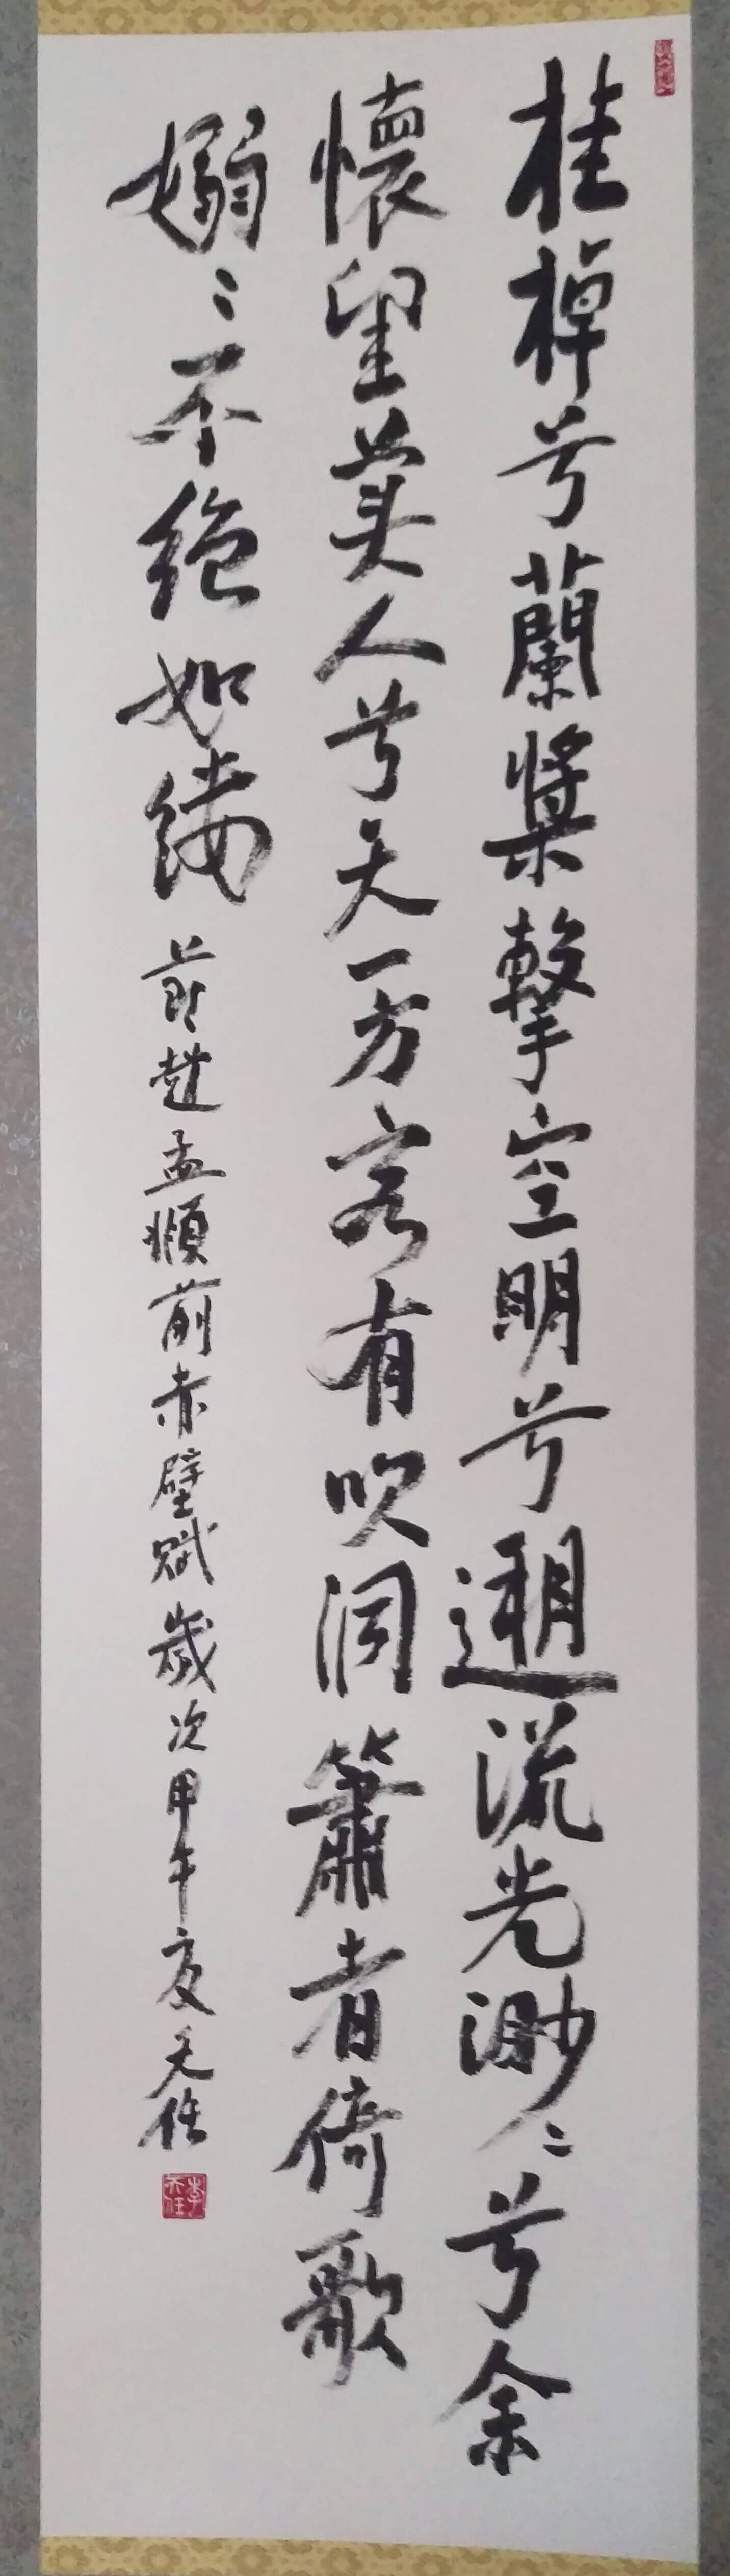 桂棹兮蘭槳擊空明兮遡流光渺〻兮余
懷望美人兮天一方客有吹洞簫者倚歌
嫋〻不絕如縷 節趙孟頫前赤壁賦歲次甲午夏天任
李天任